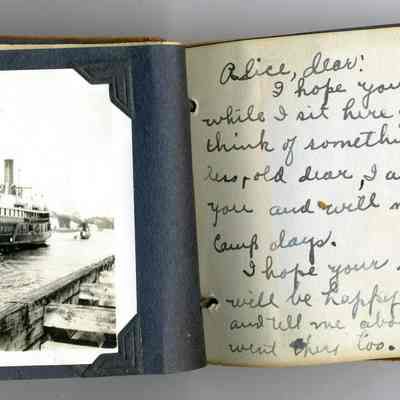 Alice, dear:
I hope you
while I sit here
think of somethi
less, old dear, I a
you and will m
Camp days.
I hope your
will be happy
and tell me abo
went there too.